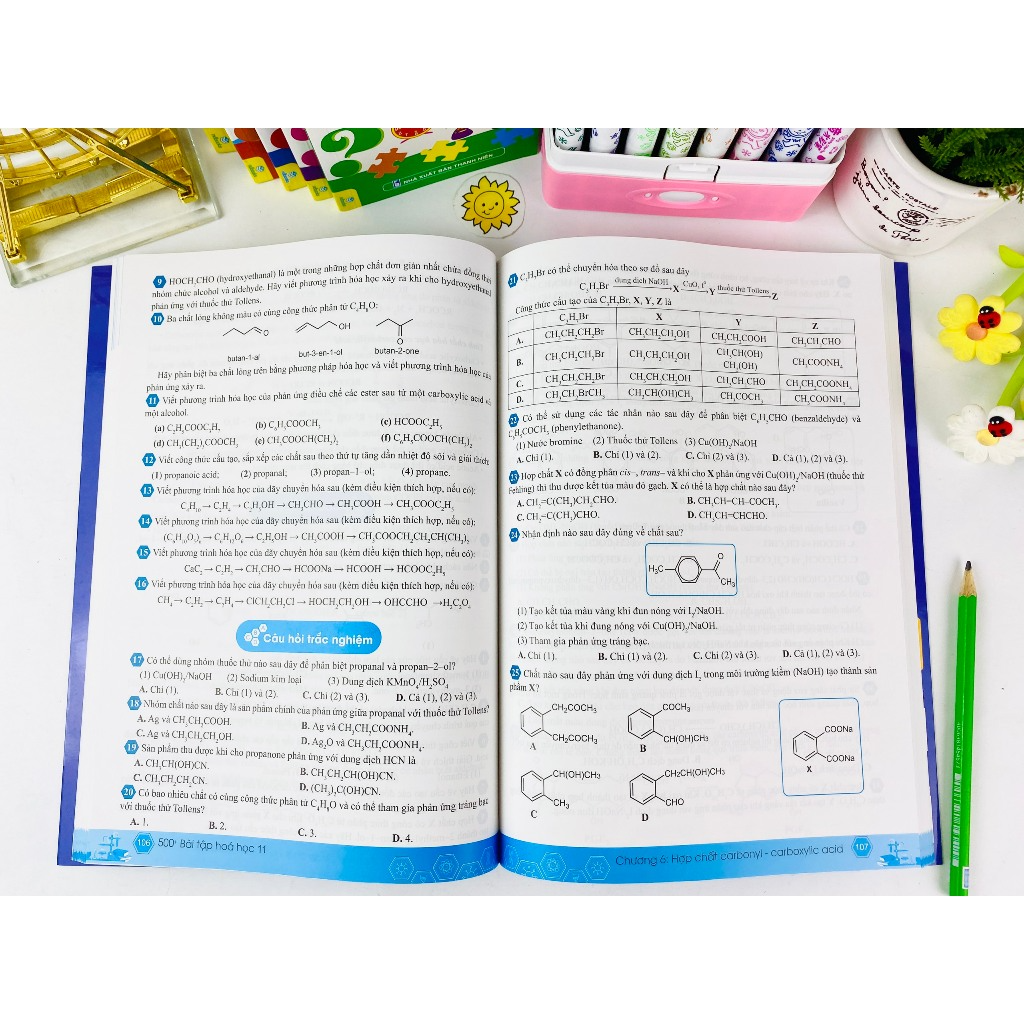 NHÀ XUẤT BẢN THANH NIÊN
9 HOCH₂CHO (hydroxyethanal) là một trong những hợp chất đơn giản nhất chứa đồng thời
nhóm chức alcohol và aldehyde. Hãy viết phương trình hóa học xảy ra khi cho hydroxyethanal
phản ứng với thuốc thử Tollens.
10 Ba chất lỏng không màu có cùng công thức phân tử C₄H₈O:
O OH O
butan-1-al but-3-en-1-ol butan-2-one
Hãy phân biệt ba chất lỏng trên bằng phương pháp hóa học và viết phương trình hóa học của
phản ứng xảy ra.
11 Viết phương trình hóa học của phản ứng điều chế các ester sau từ một carboxylic acid và
một alcohol.
(a) C₂H₅COOC₂H₅ (b) C₂H₅COOCH₃ (c) HCOOC₂H₅
(d) CH₃(CH₂)₂COOCH₃ (e) CH₃COOCH(CH₃)₂ (f) C₂H₅COOCH(CH₃)₂
12 Viết công thức cấu tạo, sắp xếp các chất sau theo thứ tự tăng dần nhiệt độ sôi và giải thích:
(1) propanoic acid; (2) propanal; (3) propan–1–ol; (4) propane.
13 Viết phương trình hóa học của dãy chuyển hóa sau (kèm điều kiện thích hợp, nếu có):
C₄H₁₀ → C₂H₄ → C₂H₅OH → CH₃CHO → CH₃COOH → CH₃COOC₂H₅
14 Viết phương trình hóa học của dãy chuyển hóa sau (kèm điều kiện thích hợp, nếu có):
(C₆H₁₀O₅)ₙ → C₆H₁₂O₆ → C₂H₅OH → CH₃COOH → CH₃COOCH₂CH₂CH(CH₃)₂
15 Viết phương trình hóa học của dãy chuyển hóa sau (kèm điều kiện thích hợp, nếu có):
CaC₂ → C₂H₂ → CH₃CHO → HCOONa → HCOOH → HCOOC₂H₅
16 Viết phương trình hóa học của dãy chuyển hóa sau (kèm điều kiện thích hợp, nếu có):
CH₄ → C₂H₂ → C₂H₄ → ClCH₂CH₂Cl → HOCH₂CH₂OH → OHCCHO → H₂C₂O₄
Câu hỏi trắc nghiệm
17 Có thể dùng nhóm thuốc thử nào sau đây để phân biệt propanal và propan–2–ol?
(1) Cu(OH)₂/NaOH (2) Sodium kim loại (3) Dung dịch KMnO₄/H₂SO₄
A. Chỉ (1). B. Chỉ (1) và (2). C. Chỉ (2) và (3). D. Cả (1), (2) và (3).
18 Nhóm chất nào sau đây là sản phẩm chính của phản ứng giữa propanal với thuốc thử Tollens?
A. Ag và CH₃CH₂COOH. B. Ag và CH₃CH₂COONH₄.
C. Ag và CH₃CH₂CH₂OH. D. Ag₂O và CH₃CH₂COONH₄.
19 Sản phẩm thu được khi cho propanone phản ứng với dung dịch HCN là
A. CH₃CH(OH)CN. B. CH₃CH₂CH(OH)CN.
C. CH₃CH₂CH₂CN. D. (CH₃)₂C(OH)CN.
20 Có bao nhiêu chất có cùng công thức phân tử C₄H₈O và có thể tham gia phản ứng tráng bạc
với thuốc thử Tollens?
A. 1. B. 2. C. 3. D. 4.
106 500⁺ Bài tập hoá học 11
21 C₃H₇Br có thể chuyển hóa theo sơ đồ sau đây
C₃H₇Br dung dịch NaOH → X CuO, t° → Y thuốc thử Tollens → Z
Công thức cấu tạo của C₃H₇Br, X, Y, Z là
C₃H₇Br X Y Z
A. CH₃CH₂CH₂Br CH₃CH₂CH₂OH CH₃CH₂COOH CH₃CH₂CHO
B. CH₃CH₂CH₂Br CH₃CH₂CH₂OH CH₃CH(OH)CH₂(OH) CH₃COONH₄
C. CH₃CH₂CH₂Br CH₃CH₂CH₂OH CH₃CH₂CHO CH₃CH₂COONH₄
D. CH₃CH₂BrCH₃ CH₃CH(OH)CH₃ CH₃COCH₃ CH₃COONH₄
22 Có thể sử dụng các tác nhân nào sau đây để phân biệt C₆H₅CHO (benzaldehyde) và
C₆H₅COCH₃ (phenylethanone).
(1) Nước bromine (2) Thuốc thử Tollens (3) Cu(OH)₂/NaOH
A. Chỉ (1). B. Chỉ (1) và (2). C. Chỉ (2) và (3). D. Cả (1), (2) và (3).
23 Hợp chất X có đồng phân cis–, trans– và khi cho X phản ứng với Cu(OH)₂/NaOH (thuốc thử
Fehling) thì thu được kết tủa màu đỏ gạch. X có thể là hợp chất nào sau đây?
A. CH₂=C(CH₃)CH₂CHO. B. CH₃CH=CH–COCH₃.
C. CH₂=C(CH₃)CHO. D. CH₃CH=CHCHO.
24 Nhận định nào sau đây đúng về chất sau?
H₃C O CH₃
(1) Tạo kết tủa màu vàng khi đun nóng với I₂/NaOH.
(2) Tạo kết tủa khi đung nóng với Cu(OH)₂/NaOH.
(3) Tham gia phản ứng tráng bạc.
A. Chỉ (1). B. Chỉ (1) và (2). C. Chỉ (2) và (3). D. Cả (1), (2) và (3).
25 Chất nào sau đây phản ứng với dung dịch I₂ trong môi trường kiềm (NaOH) tạo thành sản
phẩm X?
CH₂COCH₃ CH₂COCH₃ A
COCH₃ CH(OH)CH₃ B
COONa COONa X
CH(OH)CH₃ CH₃ C
CH₂CH(OH)CH₃ CHO D
Chương 6: Hợp chất carbonyl - carboxylic acid 107